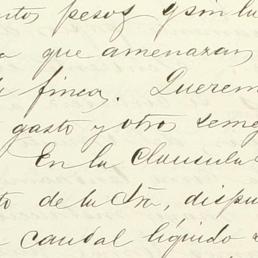 nto pesos y sin la
a que amenazan
fincas. Querem
gasto y otro seme
En la Clausula
to de la Sra, dispu
caudal líquido